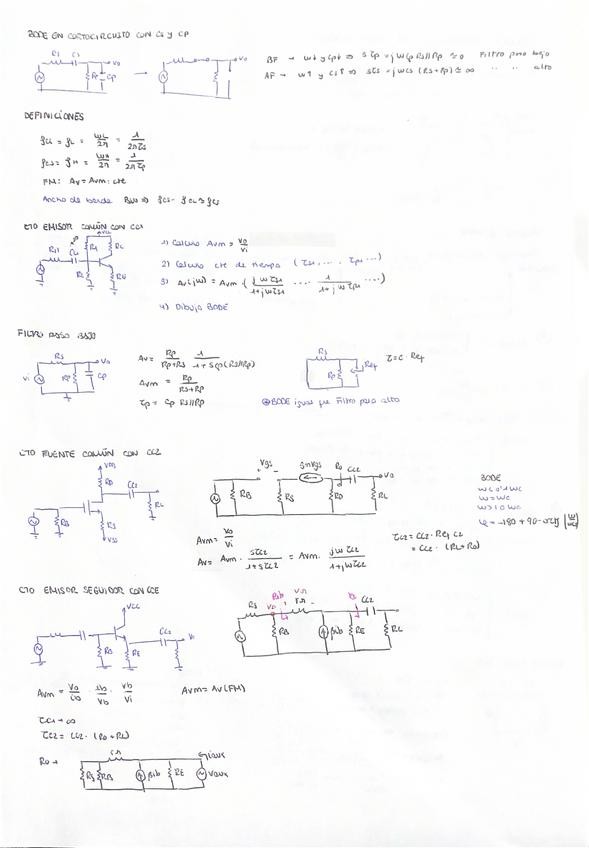 BODE EN CORTOCIRCUITO CON CS Y CP
RS CS VO RP CP VO
BF → w↓ y Cp↓ ⇒ sτp = jwCp RS//Rp ≈ 0 Filtro paso bajo
AF → w↑ y CS↑ ⇒ sτs = jwCs (RS+Rp) ≈ ∞ " " alto
DEFINICIONES
fCL = fL = wL/2π = 1/2πτs
fCS = fH = wH/2π = 1/2πτp
FM: Av = Avm: cte
Ancho de banda BW ⇒ fCS - fCL ≈ fCS
CTO EMISOR COMÚN CON CC1
VCC
RS1 CC1 R1 RC
R2 RE
1) Calculo Avm = Vo/Vi
2) Calculo cte de tiempo (τS1, ..., τP1 ...)
3) Av(jw) = Avm (jwτS1/1+jwτS1 .... 1/1+jwτP1 ....)
4) Dibujo BODE
FILTRO PASO BAJO
RS VO
Vi RP CP
Av = RP/RP+RS 1/1+SCp(RS//RP)
Avm = RP/RS+RP
τp = Cp RS//Rp
RS
Rp Req
τ = C · Req
⊕BODE igual que Filtro paso alto
CTO FUENTE COMÚN CON CC2
VDD
RD CC2
RL
RB RS
VSS
Vgs gmVgs Ro CC2 VO
RB RS RD RL
Avm = Vo/Vi
Av = Avm · sτC2/1+sτC2 = Avm · jwτC2/1+jwτC2
τC2 = CC2 · Req C2
= CC2 · (RL+RO)
BODE
w<0'1wc
w=wc
w>10wc
CTO EMISOR SEGUIDOR CON CCE
VCC
CC2 Vo
RB RE
RS Rib Vπ rπ CC2
RB βib RE RL
Avm = Vo/ib · ib/Vb · Vb/Vi
Avm = Av(FM)
τC1 → ∞
τC2 = CC2 · (RO+RL)
RO →
rπ iaux
RS RB βib RE Vaux